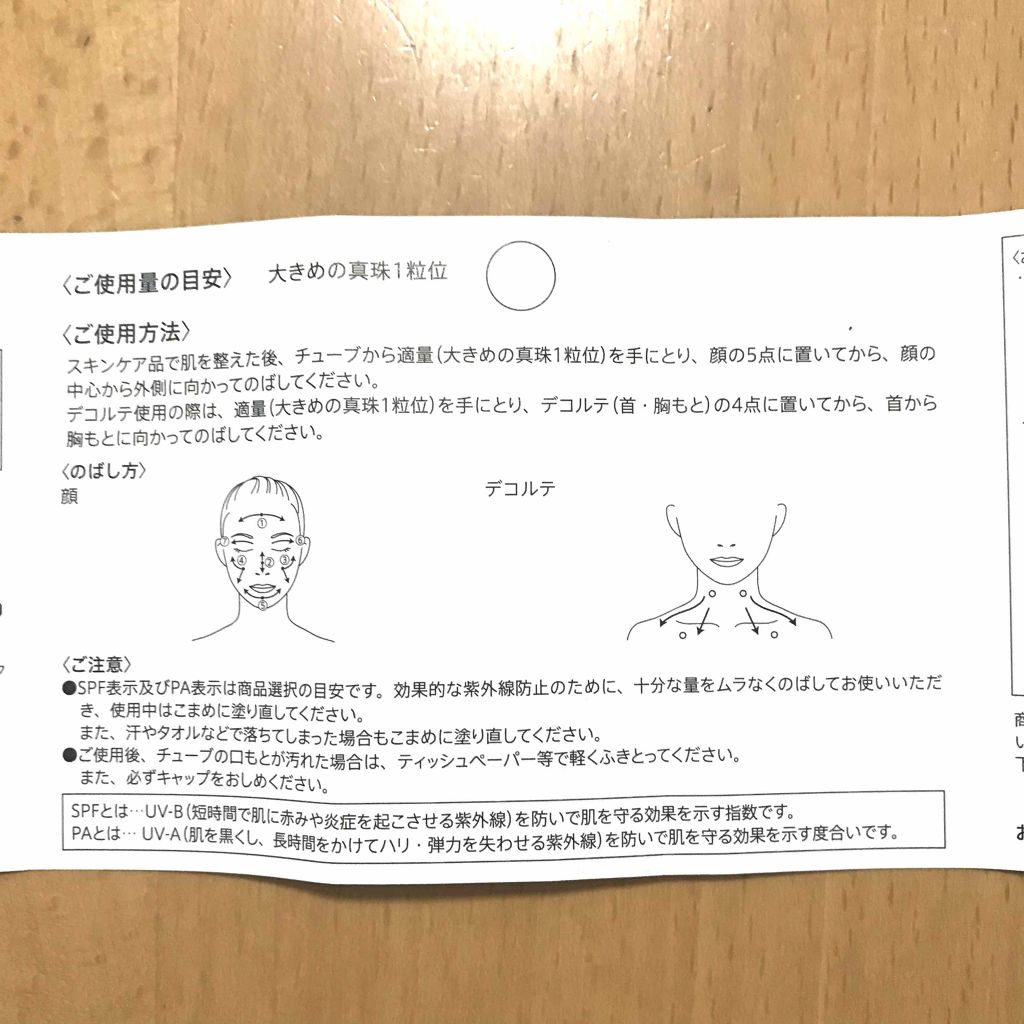 〈ご使用量の目安〉 大きめの真珠1粒位
〈ご使用方法〉
スキンケア品で肌を整えた後、チューブから適量(大きめの真珠1粒位)を手にとり、顔の5点に置いてから、顔の
中心から外側に向かってのばしてください。
デコルテ使用の際は、適量(大きめの真珠1粒位)を手にとり、デコルテ(首・胸もと)の4点に置いてから、首から
胸もとに向かってのばしてください。
〈のばし方〉
顔
デコルテ
①
⑦ ⑥
④ ② ③
⑤
〈ご注意〉
●SPF表示及びPA表示は商品選択の目安です。効果的な紫外線防止のために、十分な量をムラなくのばしてお使いいただ
き、使用中はこまめに塗り直してください。
また、汗やタオルなどで落ちてしまった場合もこまめに塗り直してください。
●ご使用後、チューブの口もとが汚れた場合は、ティッシュペーパー等で軽くふきとってください。
また、必ずキャップをおしめください。
SPFとは…UV-B(短時間で肌に赤みや炎症を起こさせる紫外線)を防いで肌を守る効果を示す指数です。
PAとは… UV-A(肌を黒くし、長時間をかけてハリ・弾力を失わせる紫外線)を防いで肌を守る効果を示す度合いです。